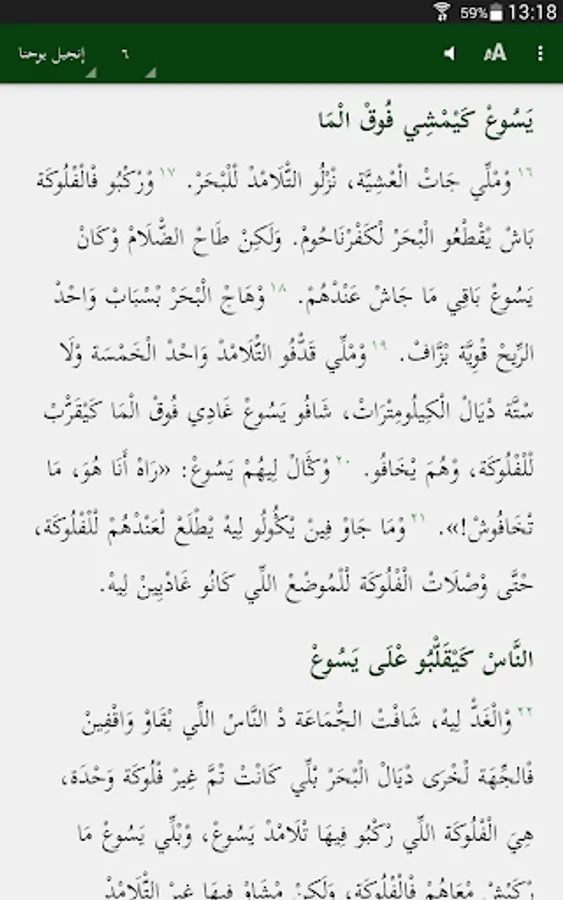 59% 13:18
إنجيل يوحنا ٦ AA
يَسُوعْ كَيْمْشِي فُوقْ الْمَا
١٦ وْمْلِّي جَاتْ الْعْشِيَّة، نْزْلُو التّْلَامْدْ لْلْبْحَرْ. ١٧ وْرْكْبُو فْالْفْلُوكَة
بَاشْ يْقْطْعُو الْبْحَرْ لْكَفْرْنَاحُومْ. وَلَكِنْ طَاحْ الضّْلَامْ وْكَانْ
يَسُوعْ بَاقِي مَا جَاشْ عَنْدْهُمْ. ١٨ وْهَاجْ الْبْحَرْ بْسْبَابْ وَاحْدْ
الرِّيحْ قْوِيَّة بْزَّافْ. ١٩ وْمْلِّي قَدّْفُو التّْلَامْدْ وَاحْدْ الْخَمْسَة وْلَا
سْتَّة دْيَالْ الْكِيلُومِتْرَاتْ، شَافُو يَسُوعْ غَادِي فُوقْ الْمَا كَيْقَرّْبْ
لْلْفْلُوكَة، وْهُمَ يْخَافُو. ٢٠ وْݣَالْ لِيهُمْ يَسُوعْ: «رَاهْ أَنَا هُوَ، مَا
تْخَافُوشْ!». ٢١ وْمَا جَاوْ فِينْ يْݣُولُو لِيهْ يْطْلَعْ لْعَنْدْهُمْ لْلْفْلُوكَة،
حْتَّى وْصْلَاتْ الْفْلُوكَة لْلْمُوضْعْ اللِّي كَانُو غَادْيِينْ لِيهْ.
النَّاسْ كَيْقَلّْبُو عْلَى يَسُوعْ
٢٢ وْالْغَدّْ لِيهْ، شَافْتْ الجّْمَاعَة دْ النَّاسْ اللِّي بْقَاوْ وَاقْفِينْ
فْالجِّهَة لْخْرَى دْيَالْ الْبْحَرْ بْلِّي كَانْتْ تْمَّ غِيرْ فْلُوكَة وَحْدَة،
هِيَ الْفْلُوكَة اللِّي رْكْبُو فِيهَا تْلَامْدْ يَسُوعْ، وْبْلِّي يَسُوعْ مَا
رْكَبْشْ مْعَاهُمْ فْالْفْلُوكَة، وَلَكِنْ مْشَاوْ فِيهَا غِيرْ التّْلَامْدْ